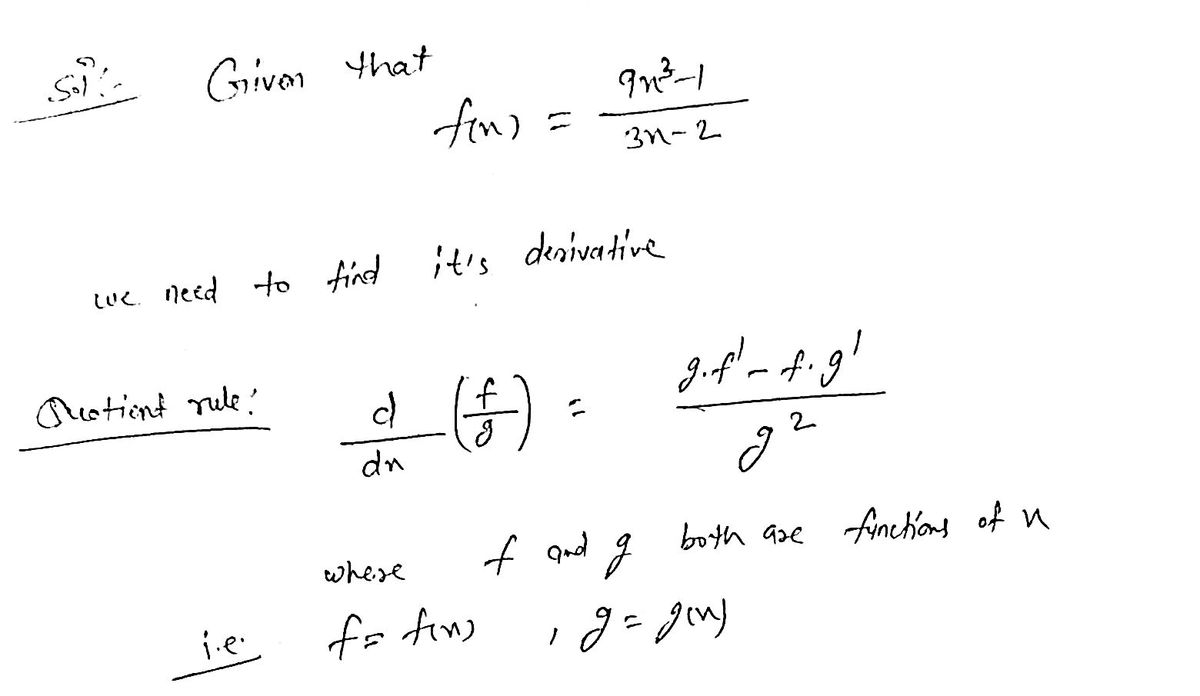 Solⁿ:- Given that
f(x) = (9x³-1)/(3x-2)
we need to find it's derivative
Quotient rule: d/dx (f/g) = (g.f' - f.g')/g²
where f and g both are functions of x
i.e. f = f(x) , g = g(x)